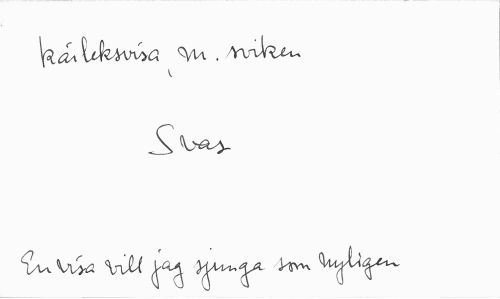 kärleksvisa, m. sviken
Svas
En visa vill jag sjunga som nyligen